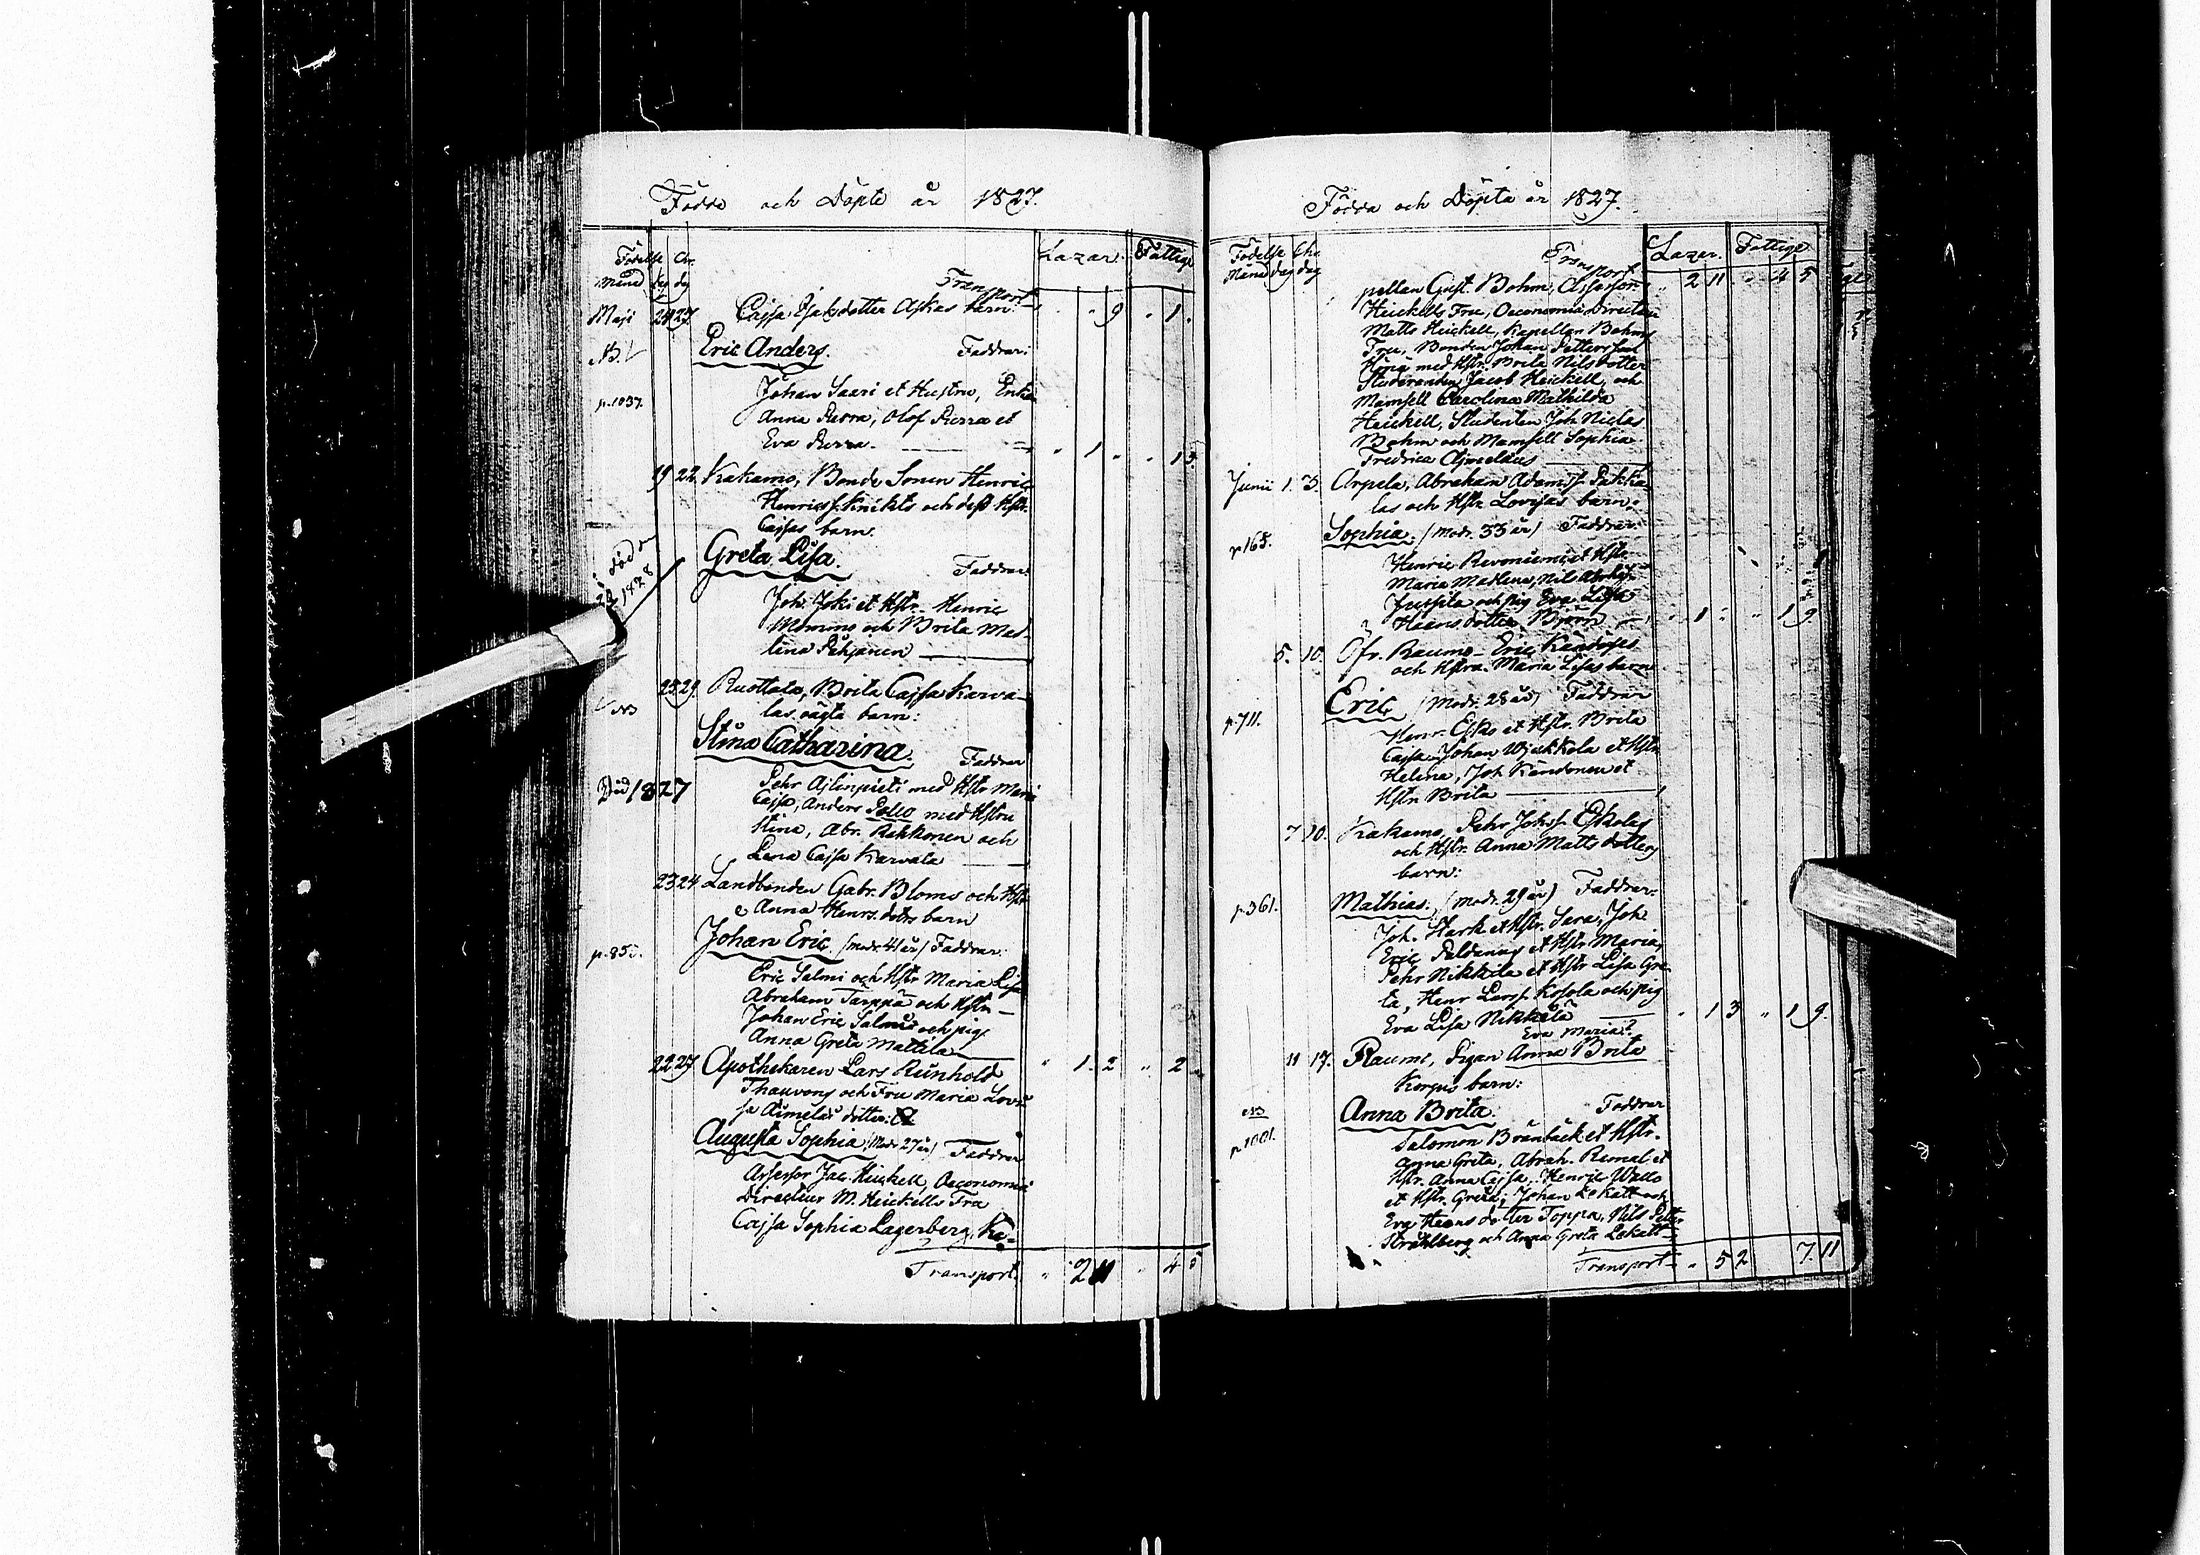 Födde och Döpte år 1827.
Födelse Chr.
Månad dag dg
Lazar. Fattige
Transport
Maji 24 27 Cajsa Isaksdotter Askas barn: " " 9 " 1 "
NB.
Eric Anders. Faddrar:
p. 1037.
Johan Saari et Hustru, Enka
Anna Pierra, Olof Pierra et
Eva Pierra. " 1 " " 1 5.
19 22. Kakamo, Bonde Sonen Henric
Henricss. Knikts och dess Hstr.
Cajsas barn.
Greta Lisa. Faddrar:
död
1828
Joh. Joki et Hstr. Henric
Mommo och Brita Mad-
lena Pehjonen
NB
25 29. Ruottala, Brita Cajsa Karva-
las oägta barn:
Stina Catharina. Faddrar
Död 1827
Pehr Ajlinpieti med Hstr Maria
Cajsa, Anders Pello med Hstru
Stina, Abr. Rekkonen och
Lena Cajsa Karvala
23 24 Landbonden Gabr. Bloms och Hstr
Anna Henrs. dotrs barn
p. 855.
Johan Eric. (Modr. 41 år) Faddrar:
Eric Salmi och Hstr Maria Lisa
Abraham Tarppa och Hstr
Johan Eric Salmi och pig.
Anna Greta Mattila
22 27 Apothekaren Lars Reinhold " 1. 2 " 2 "
Thauvons och Fru Maria Lovi
sa Aimelæi dotter:
Augusta Sophia (Modr 27 år) Faddrar
Assessor Jac. Heickell, Oeconomiæ
Directeur M. Heickells Fru
Cajsa Sophia Lagerberg, Ka-
Transport. " 2 11 " 4 5

Födda och Döpta år 1827.
Födelse Chr.
Månad dag dag
Lazar. Fattige
Transport " 2 11 " 4 5
pellan Gust. Bohm, Assessor
Heickells Fru, Oeconomiæ Directeur
Matts Heickell, Kapellan Bohms
Fru, Bonden Johan Petterss.
med Hstr. Brita Nilsdotter
Studeranden Jacob Heickell, och
Mamsell Carolina Mathilda
Heickell, Studenten Joh Niclas
Bohm och Mamsell Sophia
Fredrica Ajmelæus
Junii 1. 3. Arpela, Abraham Adamss. Pakka-
las och Hstr. Lovisas barn:
p 165.
Sophia. (Modr. 33 år) Faddrar:
Henric Revoniemi et Hstr.
Maria Madlena, Nils
Jussila och pig Eva Lisa
Hansdotter Björn " 1 " " 1 9.
5. 10. Öfv. Raumo Eric Kändoses
och Hstrs. Maria Lisas barn
p. 711.
Eric (Modr. 28 år) Faddrar
Henr. Esko et Hstr. Brita
Cajsa, Johan Wjakkela et Hstr.
Helena, Joh Kändonen et
Hstr. Brita
7 10. Kakamo, Pehr Johss. Eskoles
och Hstr. Anna Mattsdotters
barn:
p. 361.
Mathias. (modr. 29 år) Faddrar:
Joh. Hark et Hstr. Sara, Joh.
Eric et Hstr Maria,
Pehr Nikkila et Hstr Lisa Gre
ta, Henr Larss. Kosola och pig
Eva Lisa Nikkela " 1 3 " 1 9.
Eva Maria?
11 17. Raumo, Pigan Anna Brita
Korpis barn:
NB
p 1001.
Anna Brita. Faddrar
Salomon Brännback et Hstr.
Anna Greta, Abrah. Rumal et
Hstr. Anna Cajsa, Henric Wallo
et Hstr. Greta, Johan Lokatt och
Eva Hansdotter Toppa, Nils Petter
Stråhlberg och Anna Greta Lokatt
Transport " 5 2 7. 11